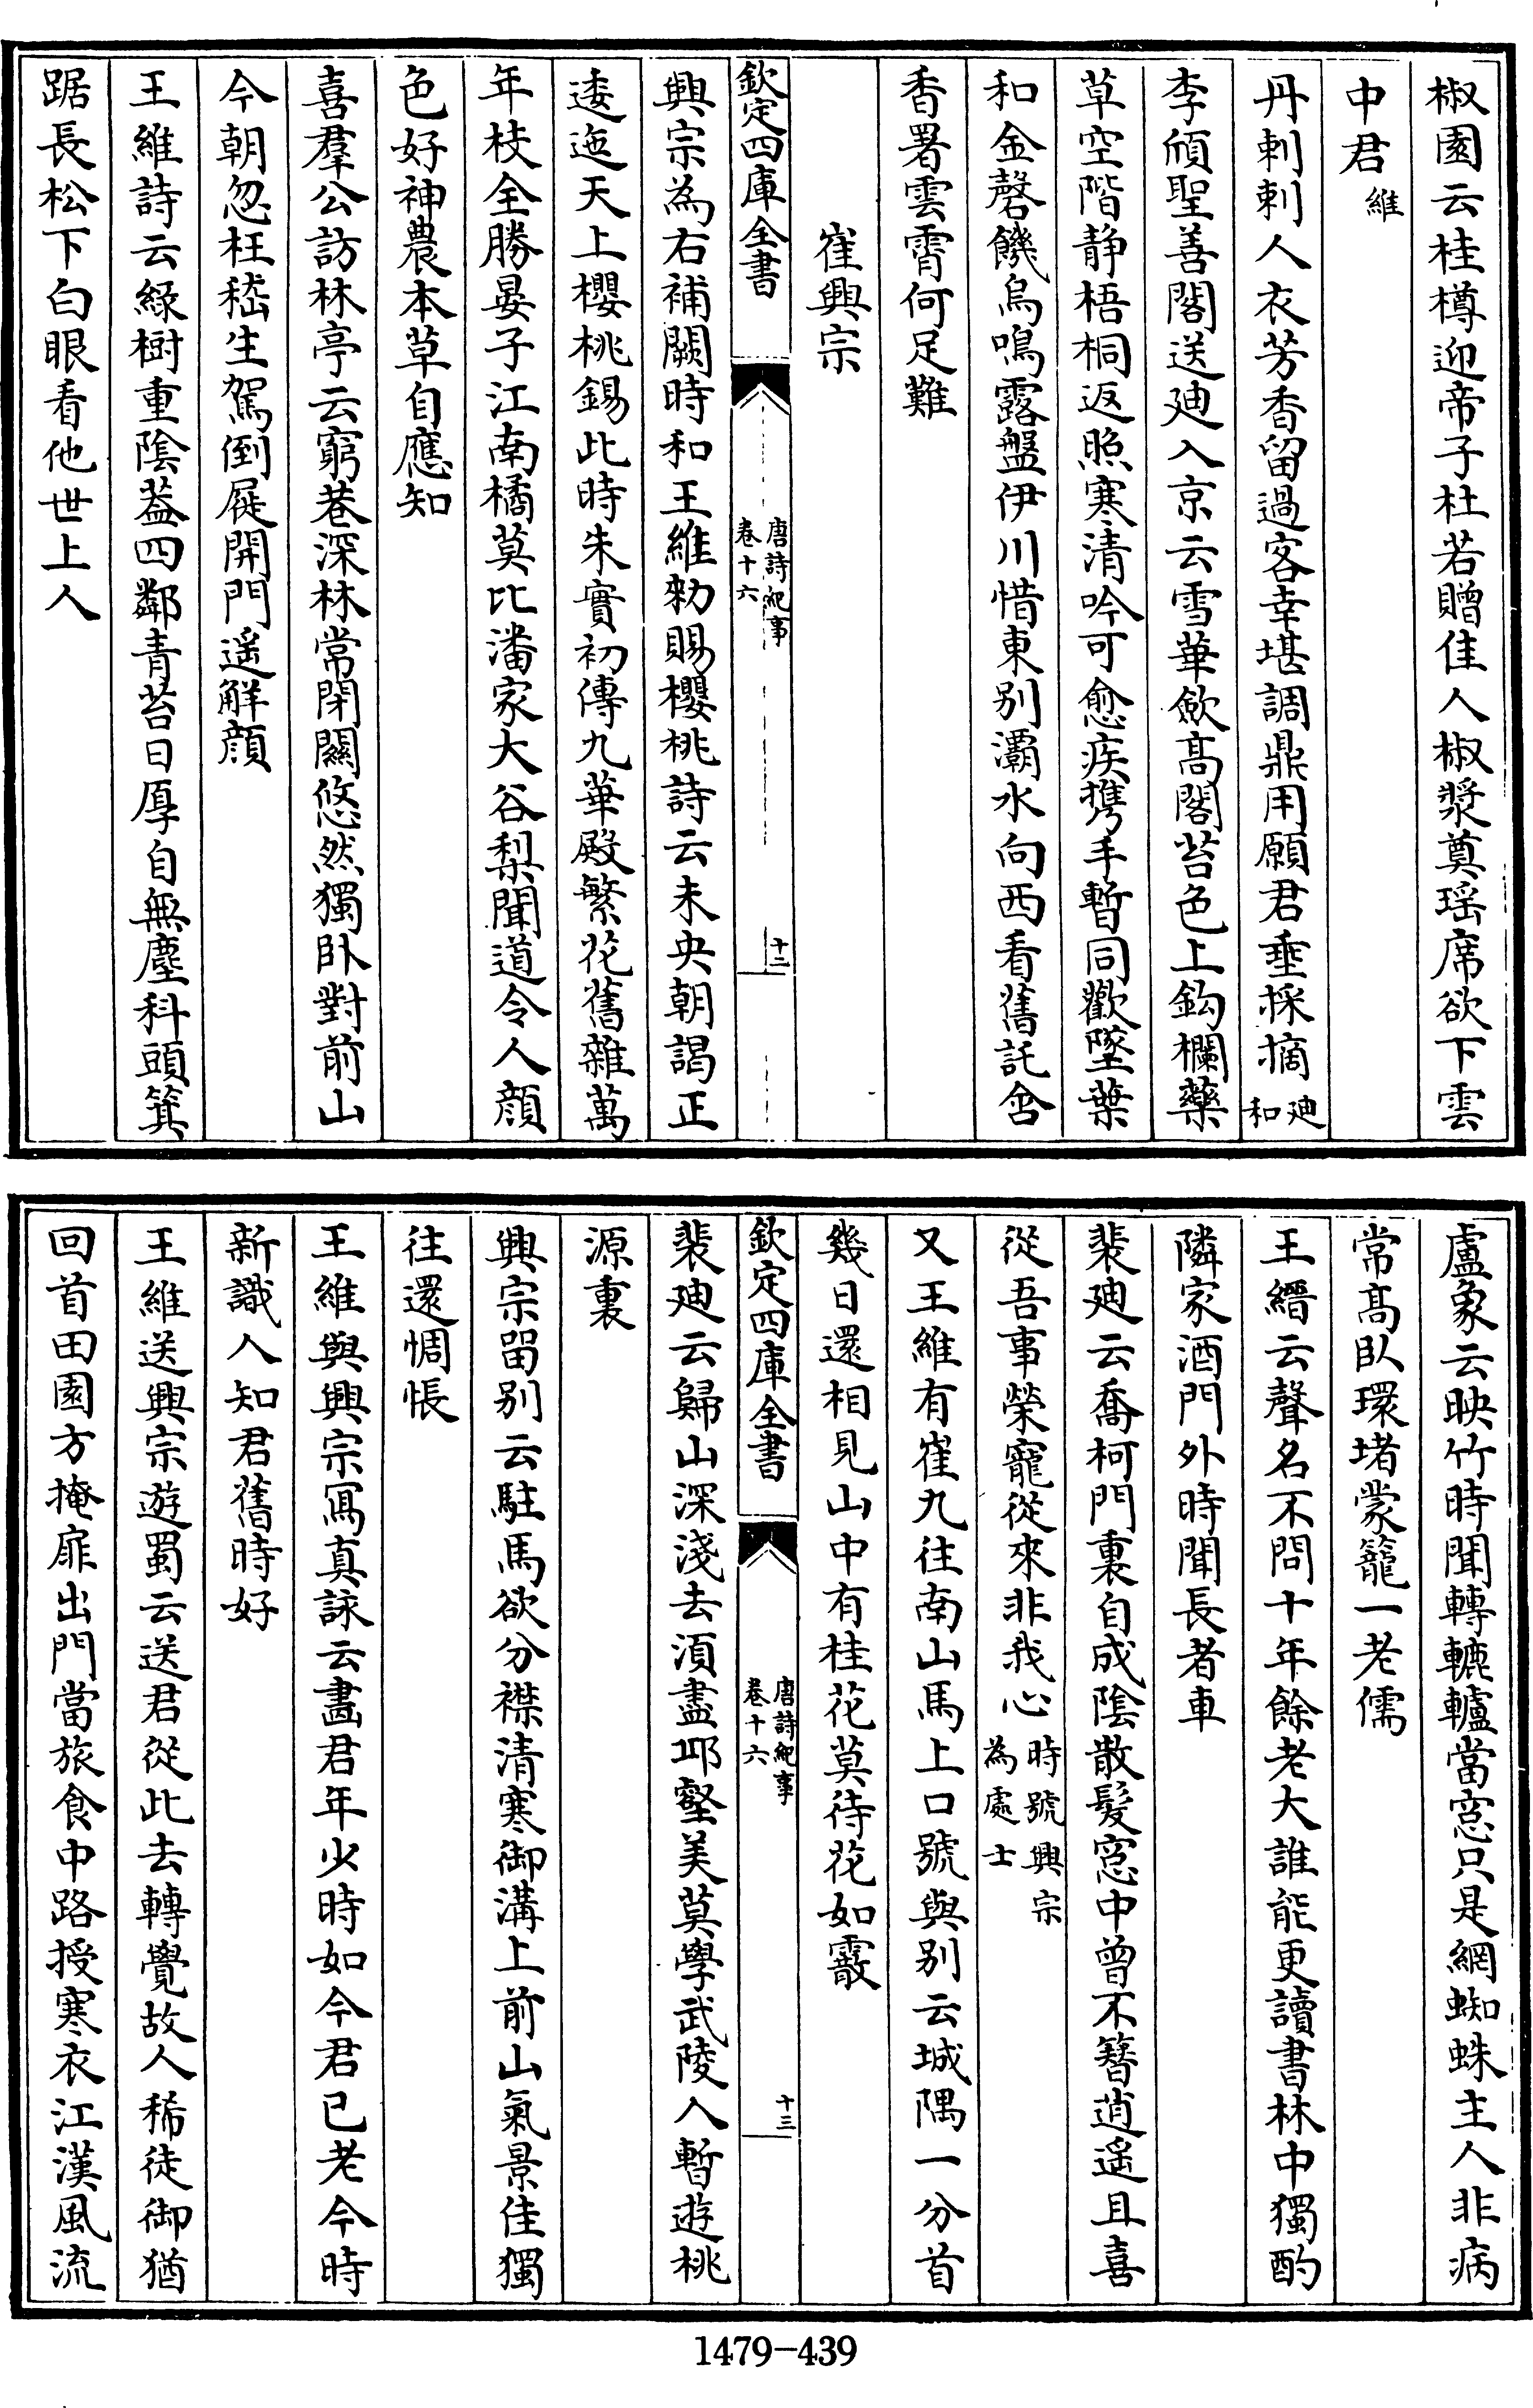 椒園云桂樽迎帝子杜若贈佳人椒漿奠瑶席欲下雲
中君維
丹刺刺人衣芳香留過客幸堪調鼎用願君垂採摘迪和
李頎聖善閣送廸入京云雪華斂髙閣苔色上鈎欄藥
草空階静梧桐返照寒清吟可愈疾携手暫同歡墜葉
和金磬饑烏鳴露盤伊川惜東别灞水向西看舊託含
香署雲霄何足難
崔興宗
欽定四庫全書
唐詩紀事
卷十六
十二
興宗為右補闕時和王維勑賜櫻桃詩云未央朝謁正
逶迤天上櫻桃錫此時朱實初傳九華殿繁花舊雜萬
年枝全勝晏子江南橘莫比潘家大谷梨聞道令人顔
色好神農本草自應知
喜羣公訪林亭云窮巷深林常閉關悠然獨卧對前山
今朝忽枉嵇生駕倒屣開門遥解顔
王維詩云緑樹重隂葢四鄰青苔日厚自無塵科頭箕
踞長松下白眼看他世上人
盧象云映竹時聞轉轆轤當窓只是網蜘蛛主人非病
常髙臥環堵蒙籠一老儒
王縉云聲名不問十年餘老大誰能更讀書林中獨酌
隣家酒門外時聞長者車
裴廸云喬柯門裏自成隂散髮窓中曾不簪逍遥且喜
從吾事榮寵從來非我心時號興宗為處士
又王維有崔九往南山馬上口號與别云城隅一分首
幾日還相見山中有桂花莫待花如霰
欽定四庫全書
唐詩紀事
卷十六
十三
裴廸云歸山深淺去須盡邱壑美莫學武陵人暫遊桃
源裏
興宗留别云駐馬欲分襟清寒御溝上前山氣景佳獨
往還惆悵
王維與興宗寫真詠云畫君年少時如今君已老今時
新識人知君舊時好
王維送興宗遊蜀云送君從此去轉覺故人稀徒御猶
回首田園方掩扉出門當旅食中路授寒衣江漢風流
1479-439